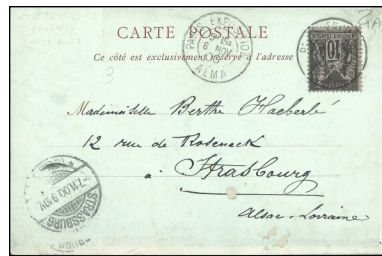 CARTE POSTALE
Ce côté est exclusivement réservé à l'adresse
PARIS EXPOSITION
6 NOV
ALMA
10
3
Mademoiselle Berthe Haeberlé
12 rue de Roseneck
à Strasbourg
Alsac-Lorraine
STRASSBURG
7.11.00.9-10V.